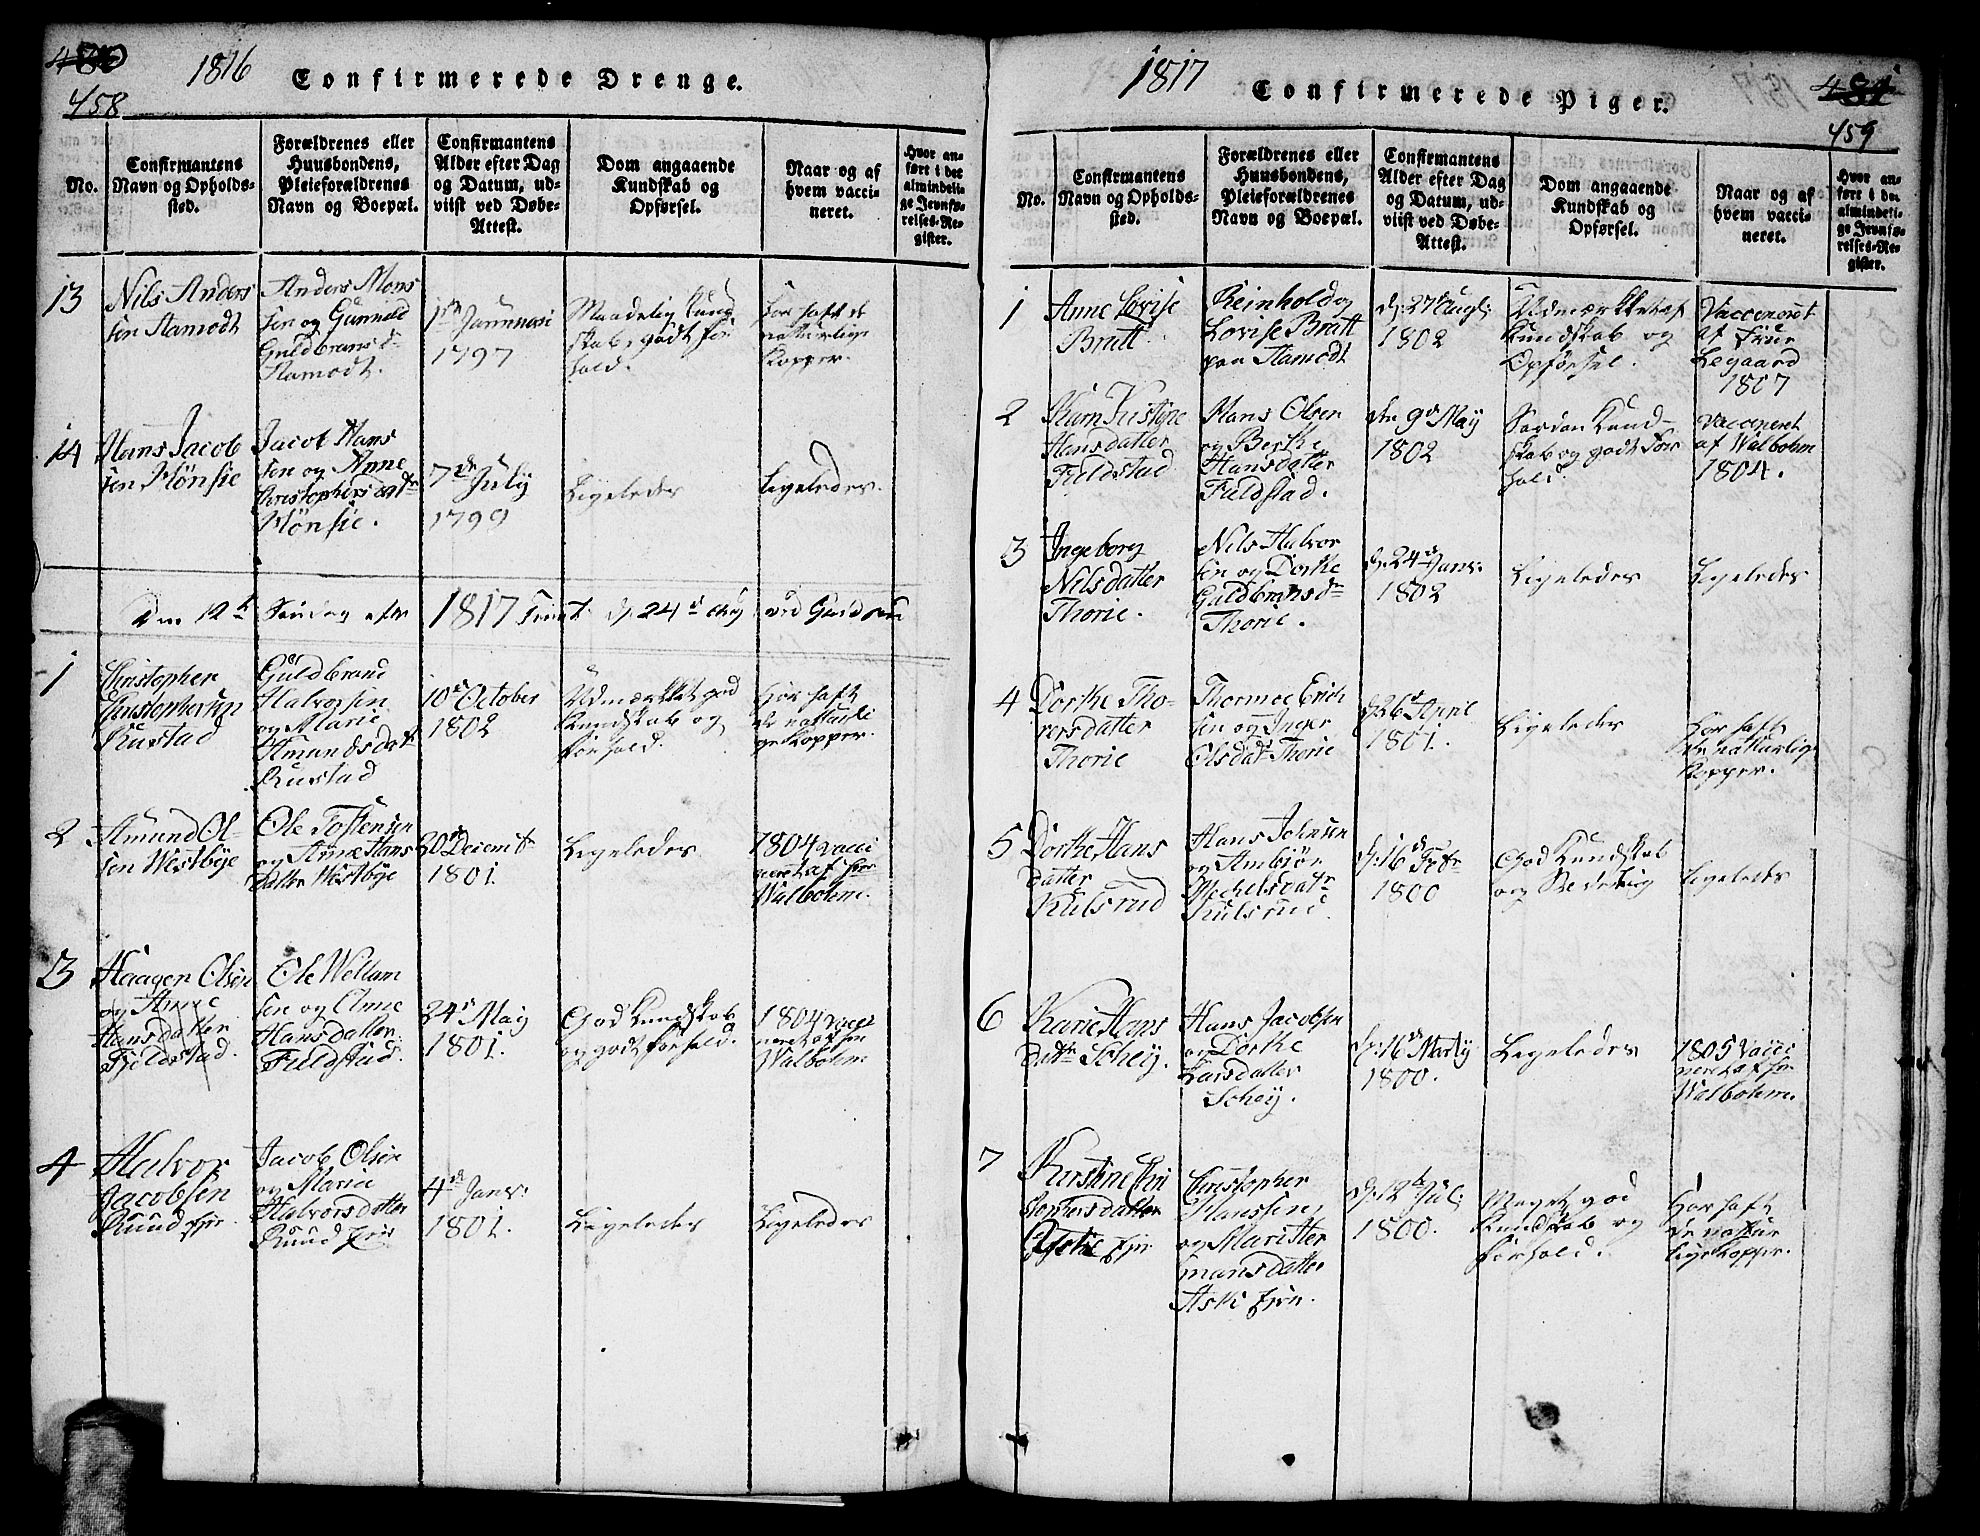 1816
Confirmerede Drenge.
458
No.
Confirmantens
Navn og Opholds-
sted.
Forældrenes eller
Huusbondens,
Pleieforældrenes
Navn og Boepæl.
Confirmantens
Alder efter Dag
og Datum, ud-
viist ved Døbe-
Attest.
Dom angaaende
Kundskab og
Opførsel.
Naar og af
hvem vacci-
neret.
Hvor an-
ført i det
almindeli-
ge Jevnfø-
relses-Re-
gister.
13
Nils Anders
sen Hamodt
Anders Mons
sen og Gunnild
Guldbransd
Hamodt.
1797
Maadelig Kund
skab, godt for
hold.
har haft de
naturlige
kopper.
14
Hans Jacob
sen Hønsie
Jacob Hans
sen og Anne
Christophersdatr
Hønsie.
7de July
1799
Ligeledes
Ligeledes.
Søndag efter
1817
Trinit
1
Christopher
Christophersen
Rustad
Guldbrand
Halvorsen
og Marie
Amundsdatr
Rustad
10d October
1802
Udmærkket god
Kundskab og
forhold.
har haft
de naturli
ge kopper.
2
Amund Ol-
sen Westbye
Ole Tostensen
og Anne Hans
datter Westbye
20d Decembr
1801.
Ligeledes
1804 vacci
neret af hr
Walbohm.
3
Haagen Olsen
og Anne
Hansdatter
Fjeldstad.
Ole Wellum
sen og Anne
Hansdatter
Fieldstad.
24d May
1801.
God Kundskab
og godt forhold.
1804 vacci
neret af hr
Walbohm.
4
Halvor
Jacobsen
Ruud
Jacob Olsen
og Maria
Halvorsdatter
Ruud
4de Janv:
1801.
Ligeledes
Ligeledes
1817
Confirmerede Piger.
459
No.
Confirmantens
Navn og Opholds-
sted.
Forældrenes eller
Huusbondens,
Pleieforældrenes
Navn og Boepæl.
Confirmantens
Alder efter Dag
og Datum, ud-
viist ved Døbe-
Attest.
Dom angaaende
Kundskab og
Opførsel.
Naar og af
hvem vacci-
neret.
Hvor an-
ført i det
almindeli-
ge Jevnfø-
relses-Re-
gister.
1
Anne Lovise
Bratt
Reinhold og
Lovise Bratt
paa Hamodt
d: 27d Augl:
1802
Udmærkket af
Kundskab og
Opførsel.
Vaccineret
af Frue
Legaard
1807
2
Hansdatter
Fieldstad
Hans Olsen
og Berthe
Hansdatter
Fieldstad.
den 9d May
1802
Kund-
skab og godt For
hold.
Vaccineret
af Walbohm
1804.
3
Ingeborg
Nilsdatter
Thorie.
Nils Halvor
sen og Dorthe
Guldbransdr
Thorie.
d. 24d Janv.
1802
Ligeledes
Ligeledes
4
Dorthe Tho-
rersdatter
Thorie
Thormoe Erich
sen og Inger
Olsdatr Thorie
d. 26d April
1801.
Ligeledes
har haft
de naturlige
kopper.
5
Dorthe Hans
datter
Kulsrud
Hans Johnsen
og Ambjør
Michelsdatr
Kulsrud.
d. 16d Febr
1800
God Kundskab
og
Ligeledes
6
Karie Hans
datter Schøy.
Hans Jacobsen
og Dorthe
Larsdatter
Schøy.
d: 16d Marty
1800.
Ligeledes
1805 Vacci
neret af hr
Walbohm.
7
Kirstine Chri
stophersdatter
Christopher
Hanssen,
og Mari Her
mansdatter
Aski
d. 12te Jul:
1800.
Meget god
Kundskab og
forhold.
har haft
de natur
lige kopper.